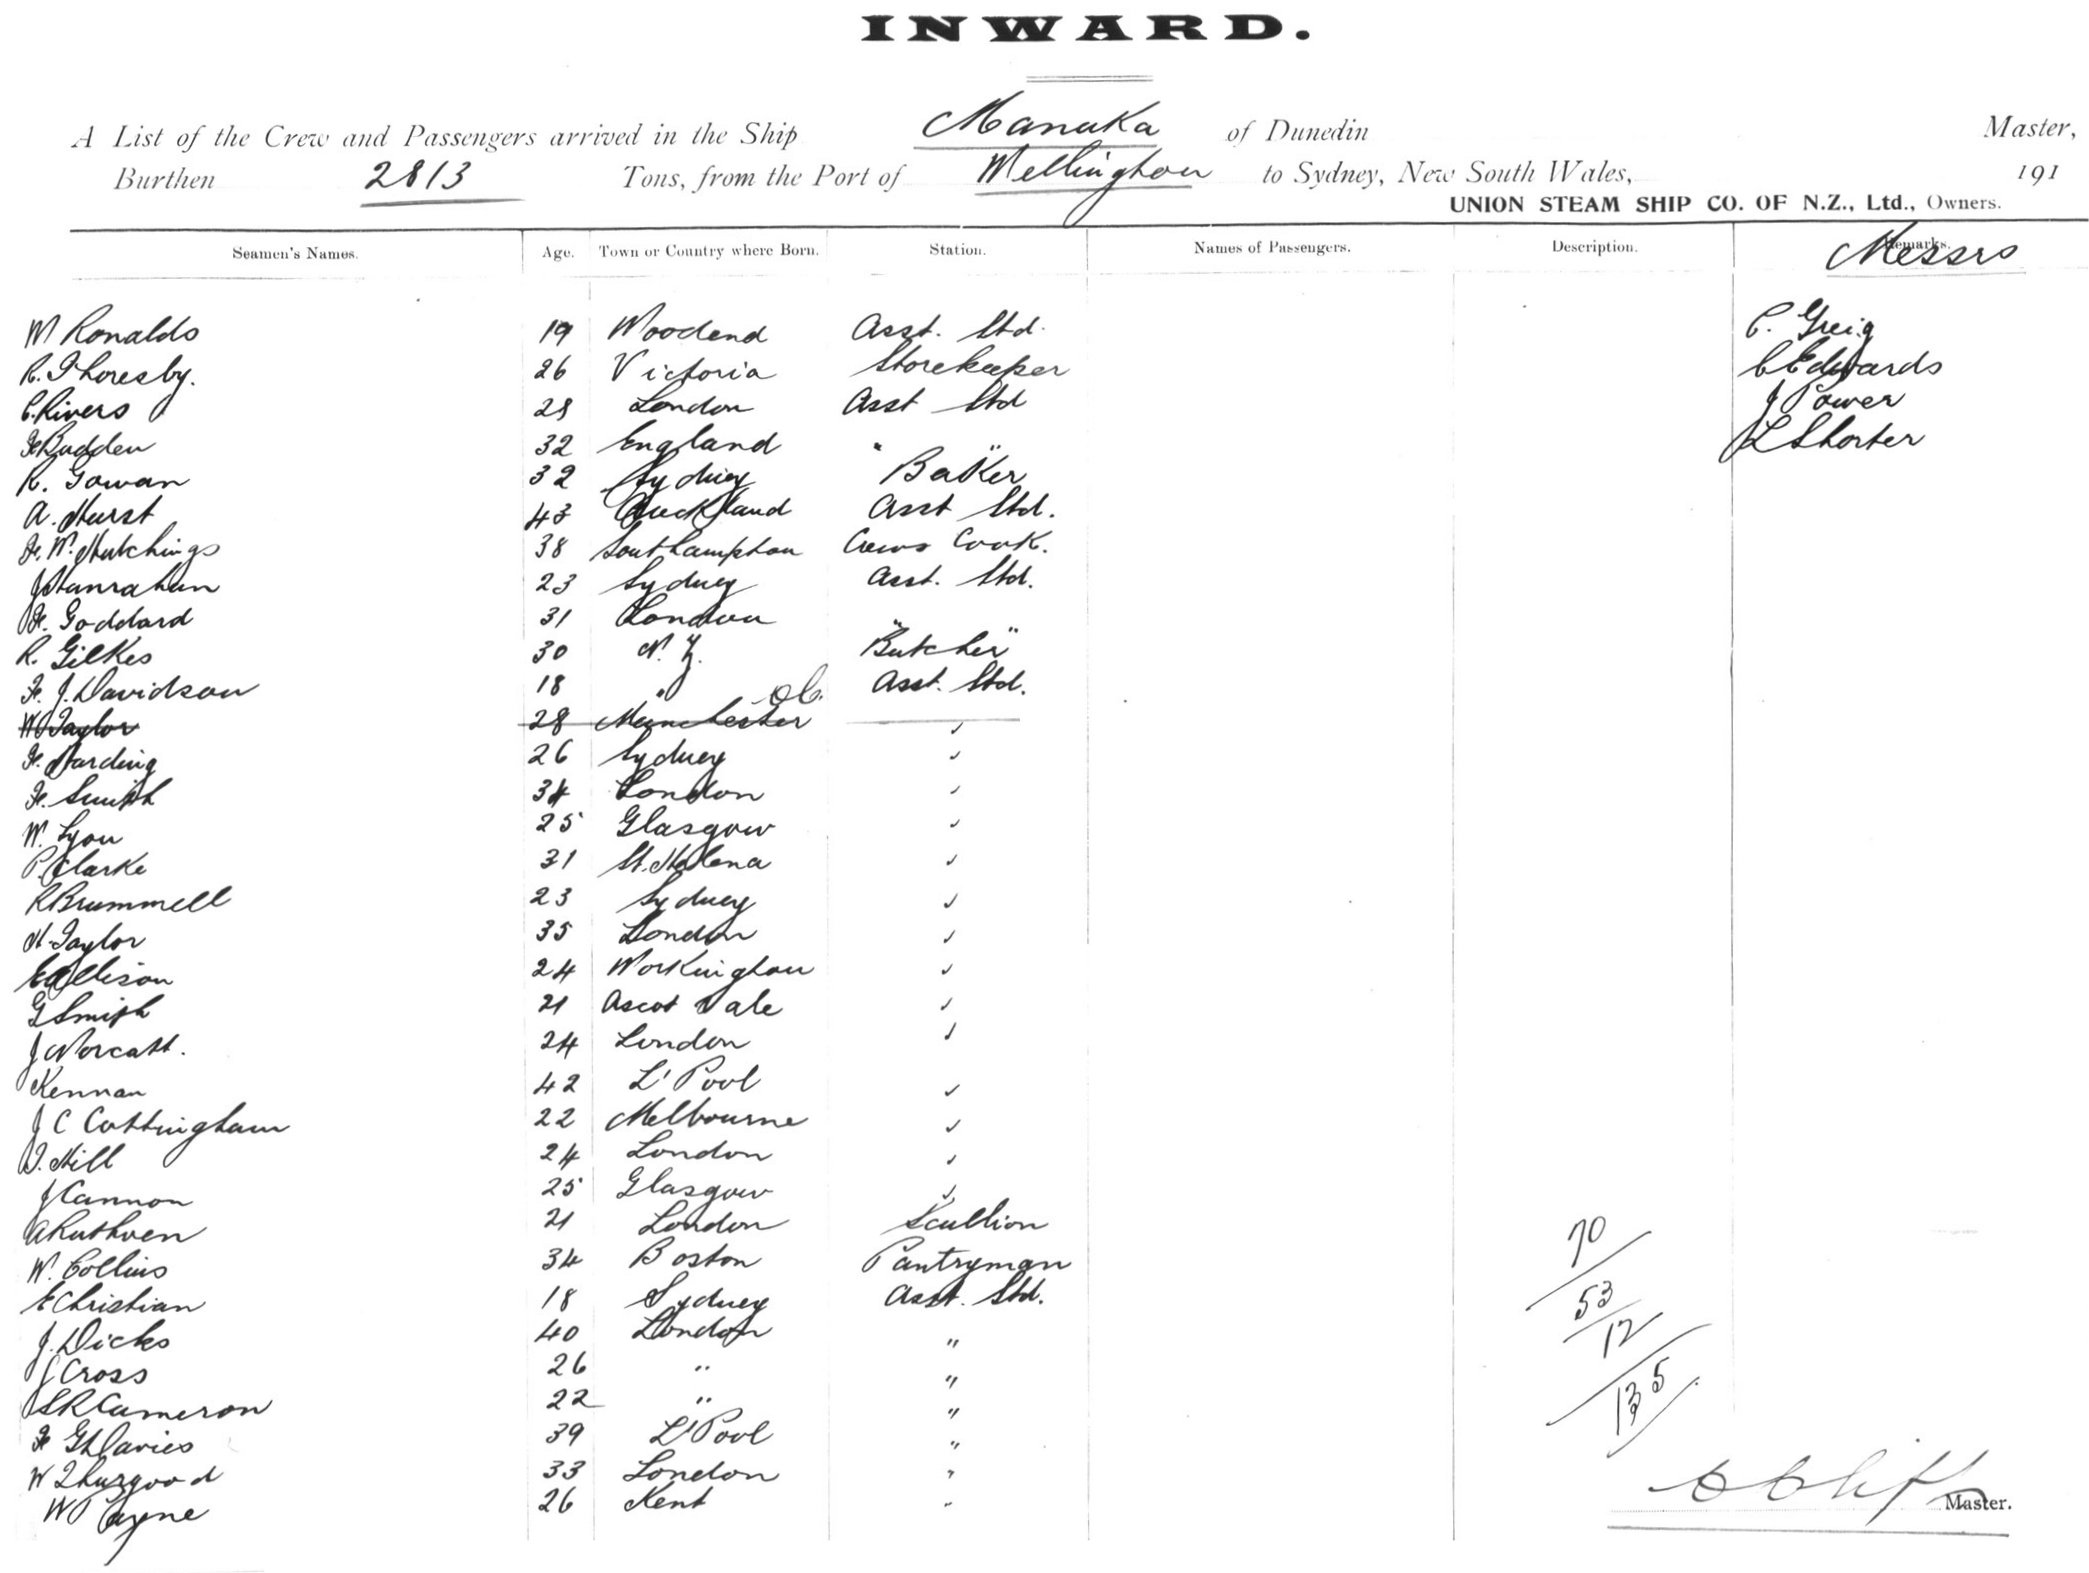 INWARD.
A List of the Crew and Passengers arrived in the Ship Manuka of Dunedin Master,
Burthen 2813 Tons, from the Port of Wellington to Sydney, New South Wales, 191
UNION STEAM SHIP CO. OF N.Z., Ltd., Owners.
Seamen's Names. Age. Town or Country where Born. Station. Names of Passengers. Description. Remarks.
Messrs
M Ronalds 19 Woodend Asst. Std. C. Greig
R. Thoresby. 26 Victoria Storekeeper C Edwards
C. Rivers 28 London Asst Std J Power
F. Budden 32 England " " L Shorter
R. Gowan 32 Sydney Baker
A. Hurst 43 Auckland Asst Std.
F. W. Hutchings 38 Southampton Crews Cook.
J Hanrahan 23 Sydney Asst. Std.
F. Goddard 31 London " "
R. Gilkes 30 N. Z. Butcher
F. J. Davidson 18 " Asst. Std.
W Taylor 28 Manchester
F. Harding 26 Sydney ✓
F. Smith 34 London ✓
W. Lyon 25 Glasgow ✓
P. Clarke 31 St. Helena ✓
R Brummell 23 Sydney ✓
H. Taylor 35 London ✓
E Allison 24 Workington ✓
G Smith 21 Ascot Vale ✓
J Norcatt. 24 London ✓
Kennan 42 L'Pool ✓
J C Cottingham 22 Melbourne ✓
D. Hill 24 London ✓
J Cannon 25 Glasgow ✓
A Ruthven 21 London Scullion
W. Collins 34 Boston Pantryman
E Christian 18 Sydney Asst. Std.
J. Dicks 40 London "
J Cross 26 " "
S R Cameron 22 " "
F G H Davies 39 L'Pool "
W Thurgood 33 London "
W Payne 26 Kent "
70
53
12
135
Master.